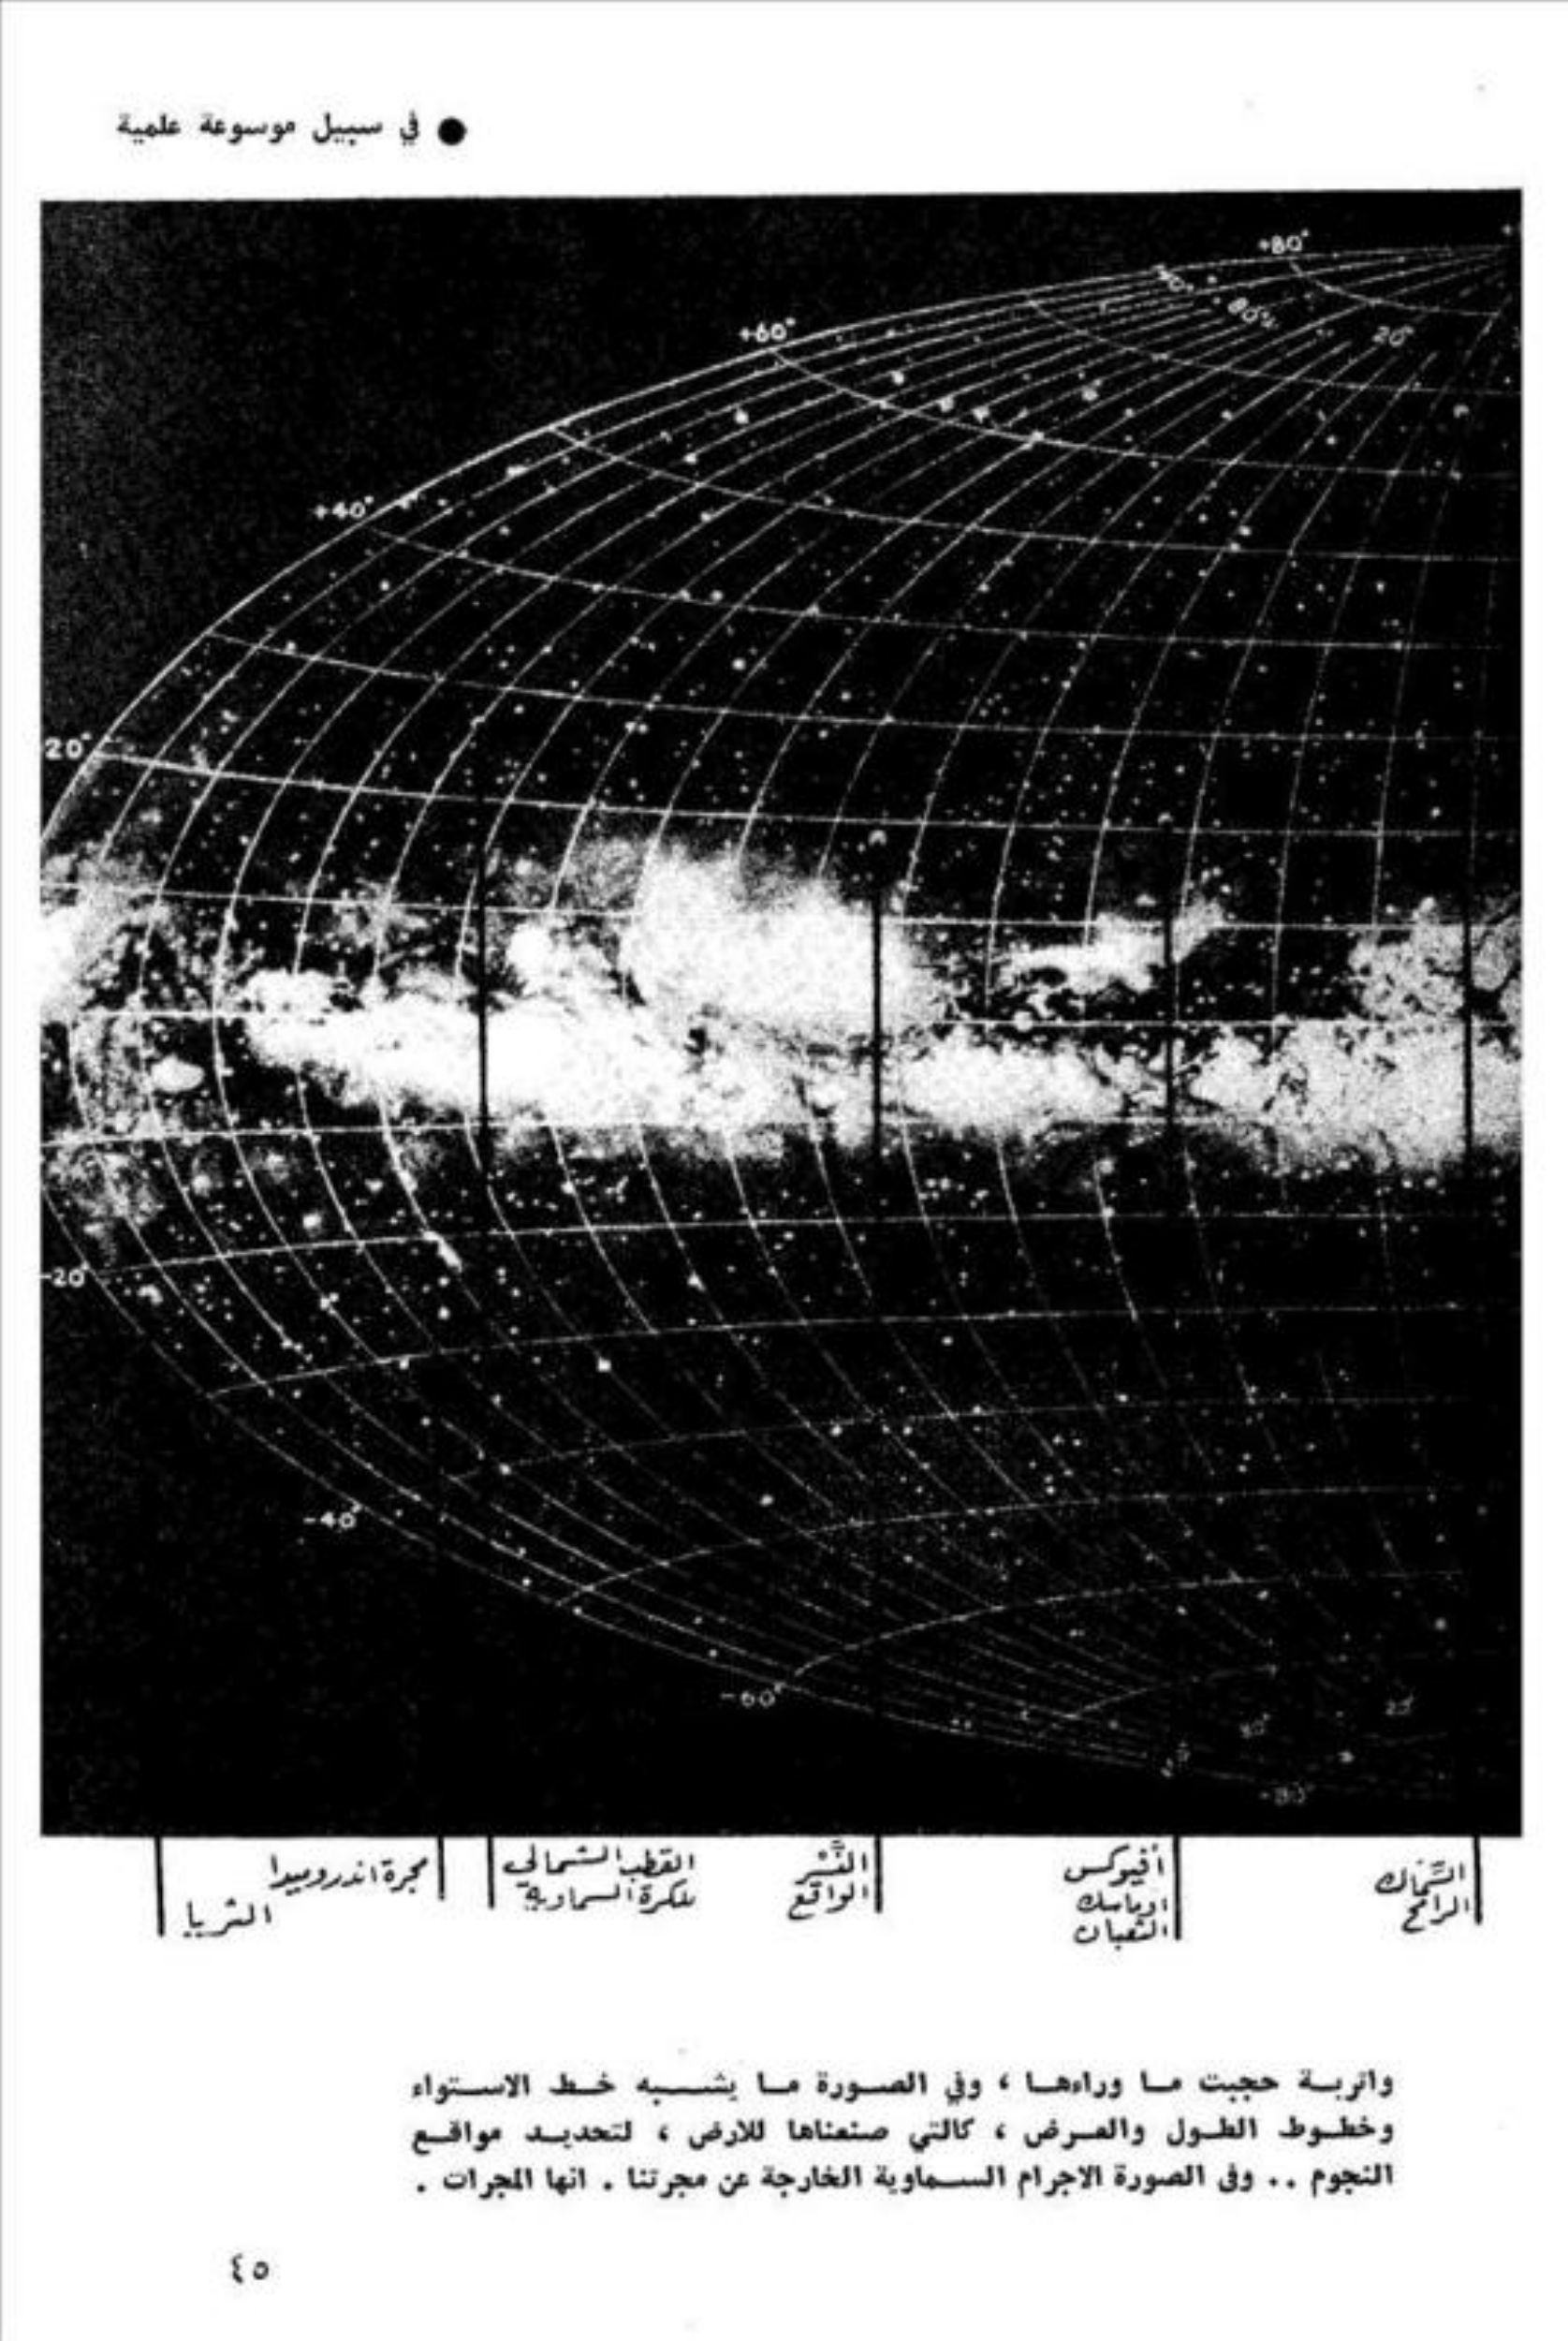 ● في سبيل موسوعة علمية
+80°
80°
20°
+60°
+40°
20°
-20°
-40°
-60°
20°
80°
-80°
السِّماك
الرامح
أفيوكس
اوماسك
الثعبان
النَّسْر
الواقع
القطب الشمالي
للكرة السماوية
مجرة اندروميدا
الثريا
واتربة حجبت ما وراءها ، وفي الصورة ما يشبه خط الاستواء
وخطوط الطول والعرض ، كالتي صنعناها للارض ، لتحديد مواقع
النجوم .. وفى الصورة الاجرام السماوية الخارجة عن مجرتنا . انها المجرات .
٤٥